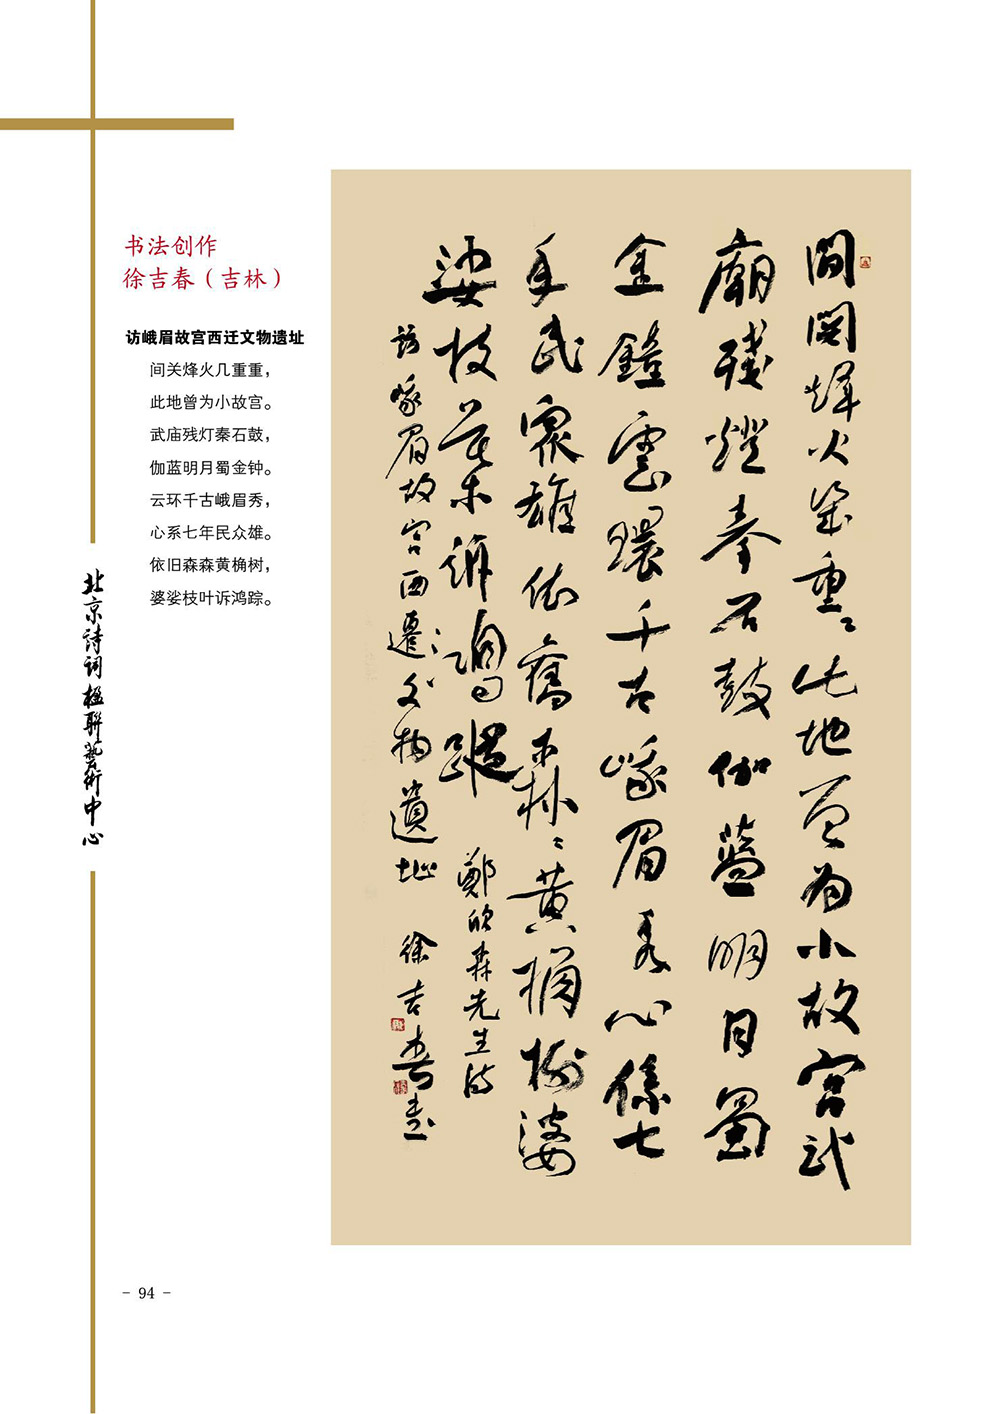 书法创作
徐吉春（吉林）
访峨眉故宫西迁文物遗址
间关烽火几重重，
此地曾为小故宫。
武庙残灯秦石鼓，
伽蓝明月蜀金钟。
云环千古峨眉秀，
心系七年民众雄。
依旧森森黄桷树，
婆娑枝叶诉鸿踪。
北京诗词楹联艺术中心
間関烽火幾重重此地曾为小故宫武
廟残燈秦石鼓伽藍明月蜀
金鐘雲環千古峨眉秀心係七
年民眾雄依舊森森黄桷樹婆
娑枝葉訴鴻蹤 鄭欣淼先生诗
訪峨眉故宫西遷文物遺址 徐吉春书
- 94 -